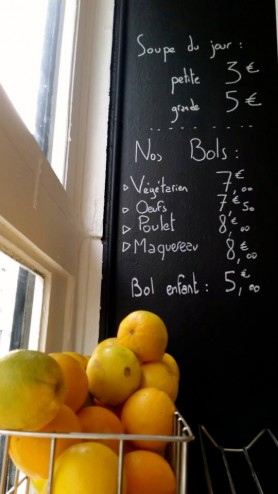 Soupe du jour :
petite 3€
grande 5€
Nos Bols :
▷ Végétarien 7€,00
▷ Oeufs 7€,50
▷ Poulet 8€,00
▷ Maquereau 8€,00
Bol enfant : 5€,00